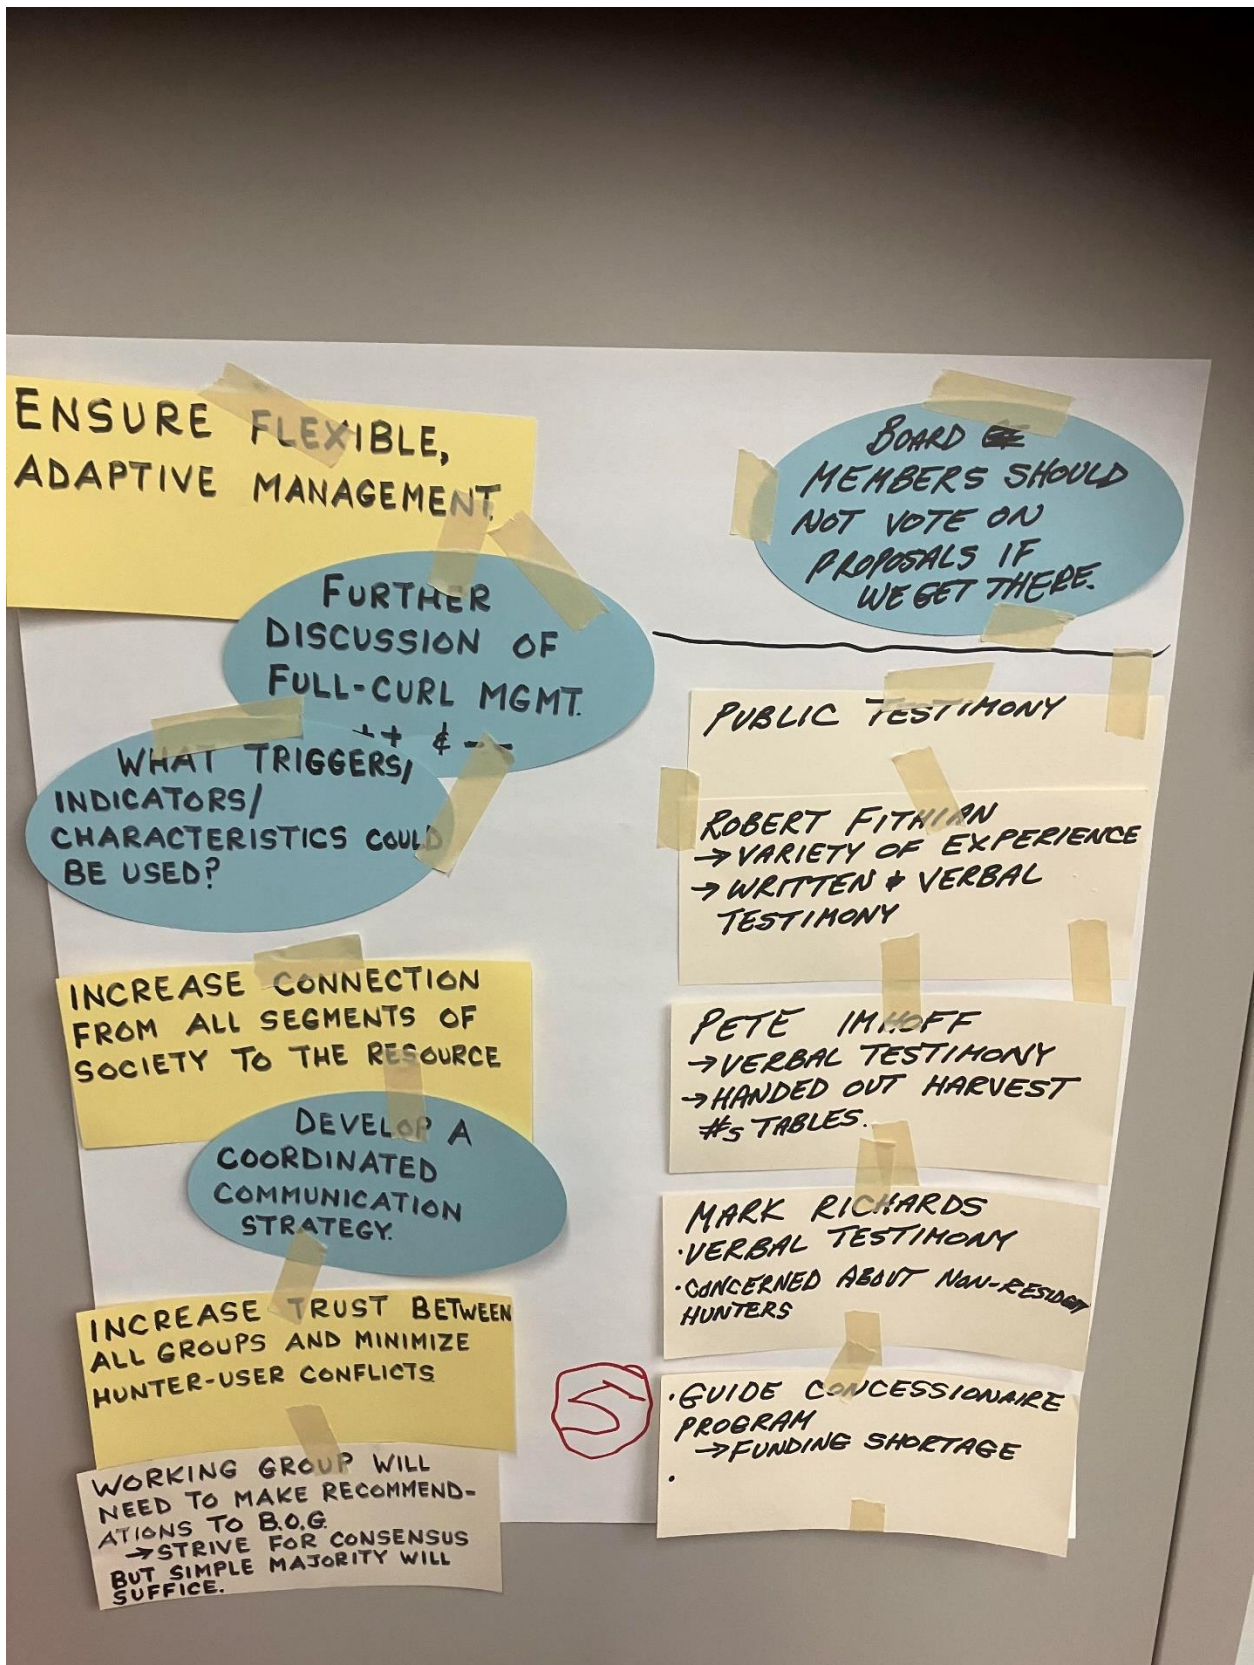 ENSURE FLEXIBLE,
ADAPTIVE MANAGEMENT.
FURTHER
DISCUSSION OF
FULL-CURL MGMT.
++ & --
WHAT TRIGGERS/
INDICATORS/
CHARACTERISTICS COULD
BE USED?
INCREASE CONNECTION
FROM ALL SEGMENTS OF
SOCIETY TO THE RESOURCE
DEVELOP A
COORDINATED
COMMUNICATION
STRATEGY.
INCREASE TRUST BETWEEN
ALL GROUPS AND MINIMIZE
HUNTER-USER CONFLICTS
WORKING GROUP WILL
NEED TO MAKE RECOMMEND-
ATIONS TO B.O.G.
→ STRIVE FOR CONSENSUS
BUT SIMPLE MAJORITY WILL
SUFFICE.
BOARD
MEMBERS SHOULD
NOT VOTE ON
PROPOSALS IF
WE GET THERE.
PUBLIC TESTIMONY
ROBERT FITHIAN
→ VARIETY OF EXPERIENCE
→ WRITTEN & VERBAL
TESTIMONY
PETE IMHOFF
→ VERBAL TESTIMONY
→ HANDED OUT HARVEST
#s TABLES.
MARK RICHARDS
· VERBAL TESTIMONY
· CONCERNED ABOUT NON-RESIDENT
HUNTERS
· GUIDE CONCESSIONAIRE
PROGRAM
→ FUNDING SHORTAGE
·
5